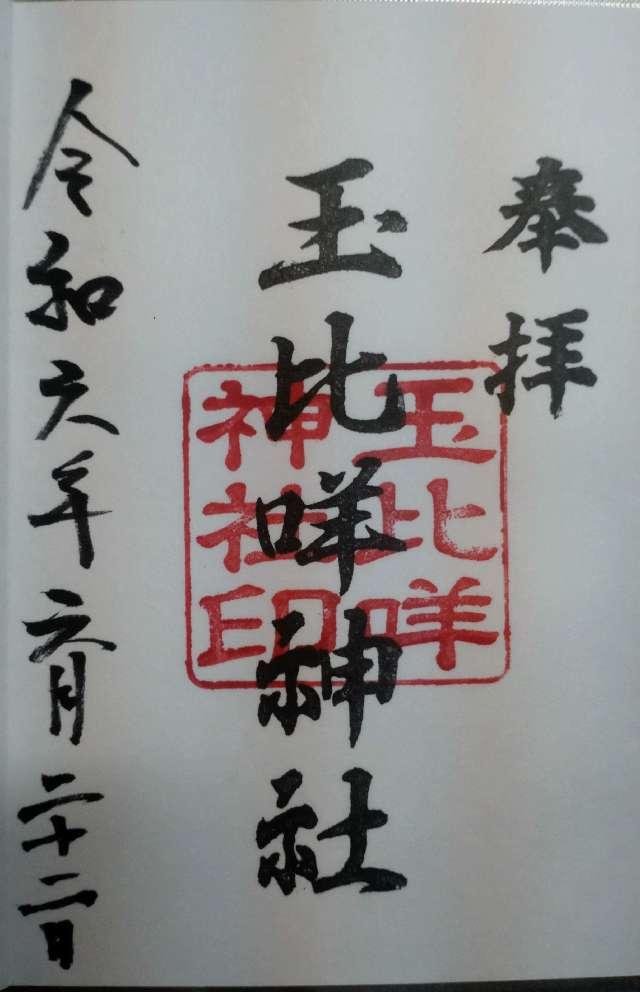 奉拝
玉比咩神社
玉比咩
神社印
令和六年六月二十二日